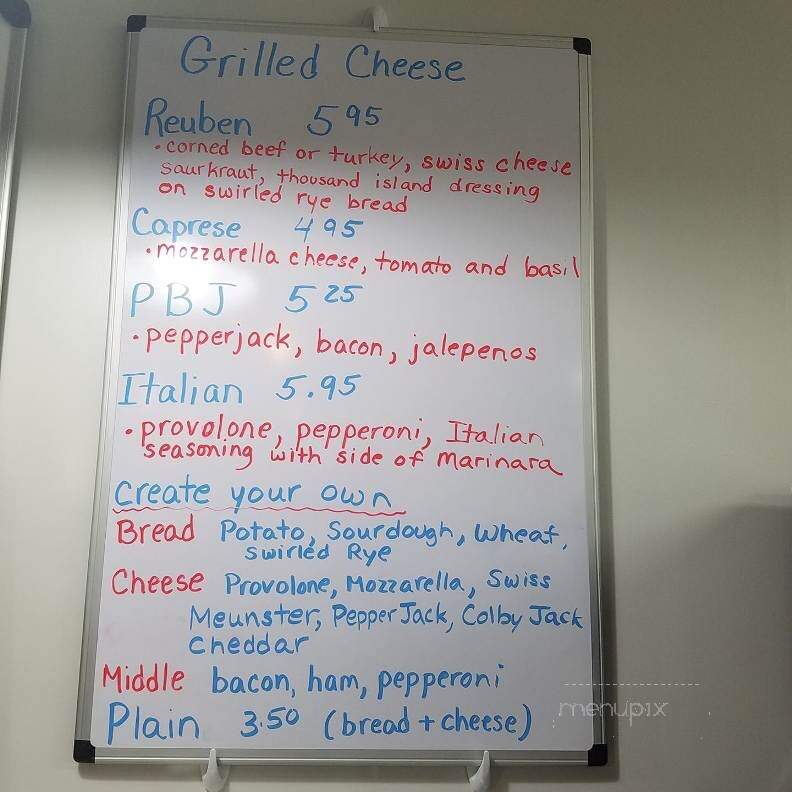 Grilled Cheese
Reuben 5 95
• corned beef or turkey, swiss cheese
saurkraut, thousand island dressing
on swirled rye bread
Caprese 4 95
• mozzarella cheese, tomato and basil
PBJ 5 25
• pepperjack, bacon, jalepenos
Italian 5.95
• provolone, pepperoni, Italian
seasoning with side of marinara
Create your own
Bread Potato, Sourdough, Wheat,
Swirled Rye
Cheese Provolone, Mozzarella, Swiss
Meunster, Pepper Jack, Colby Jack
Cheddar
Middle bacon, ham, pepperoni
Plain 3.50 (bread + cheese)
menupix